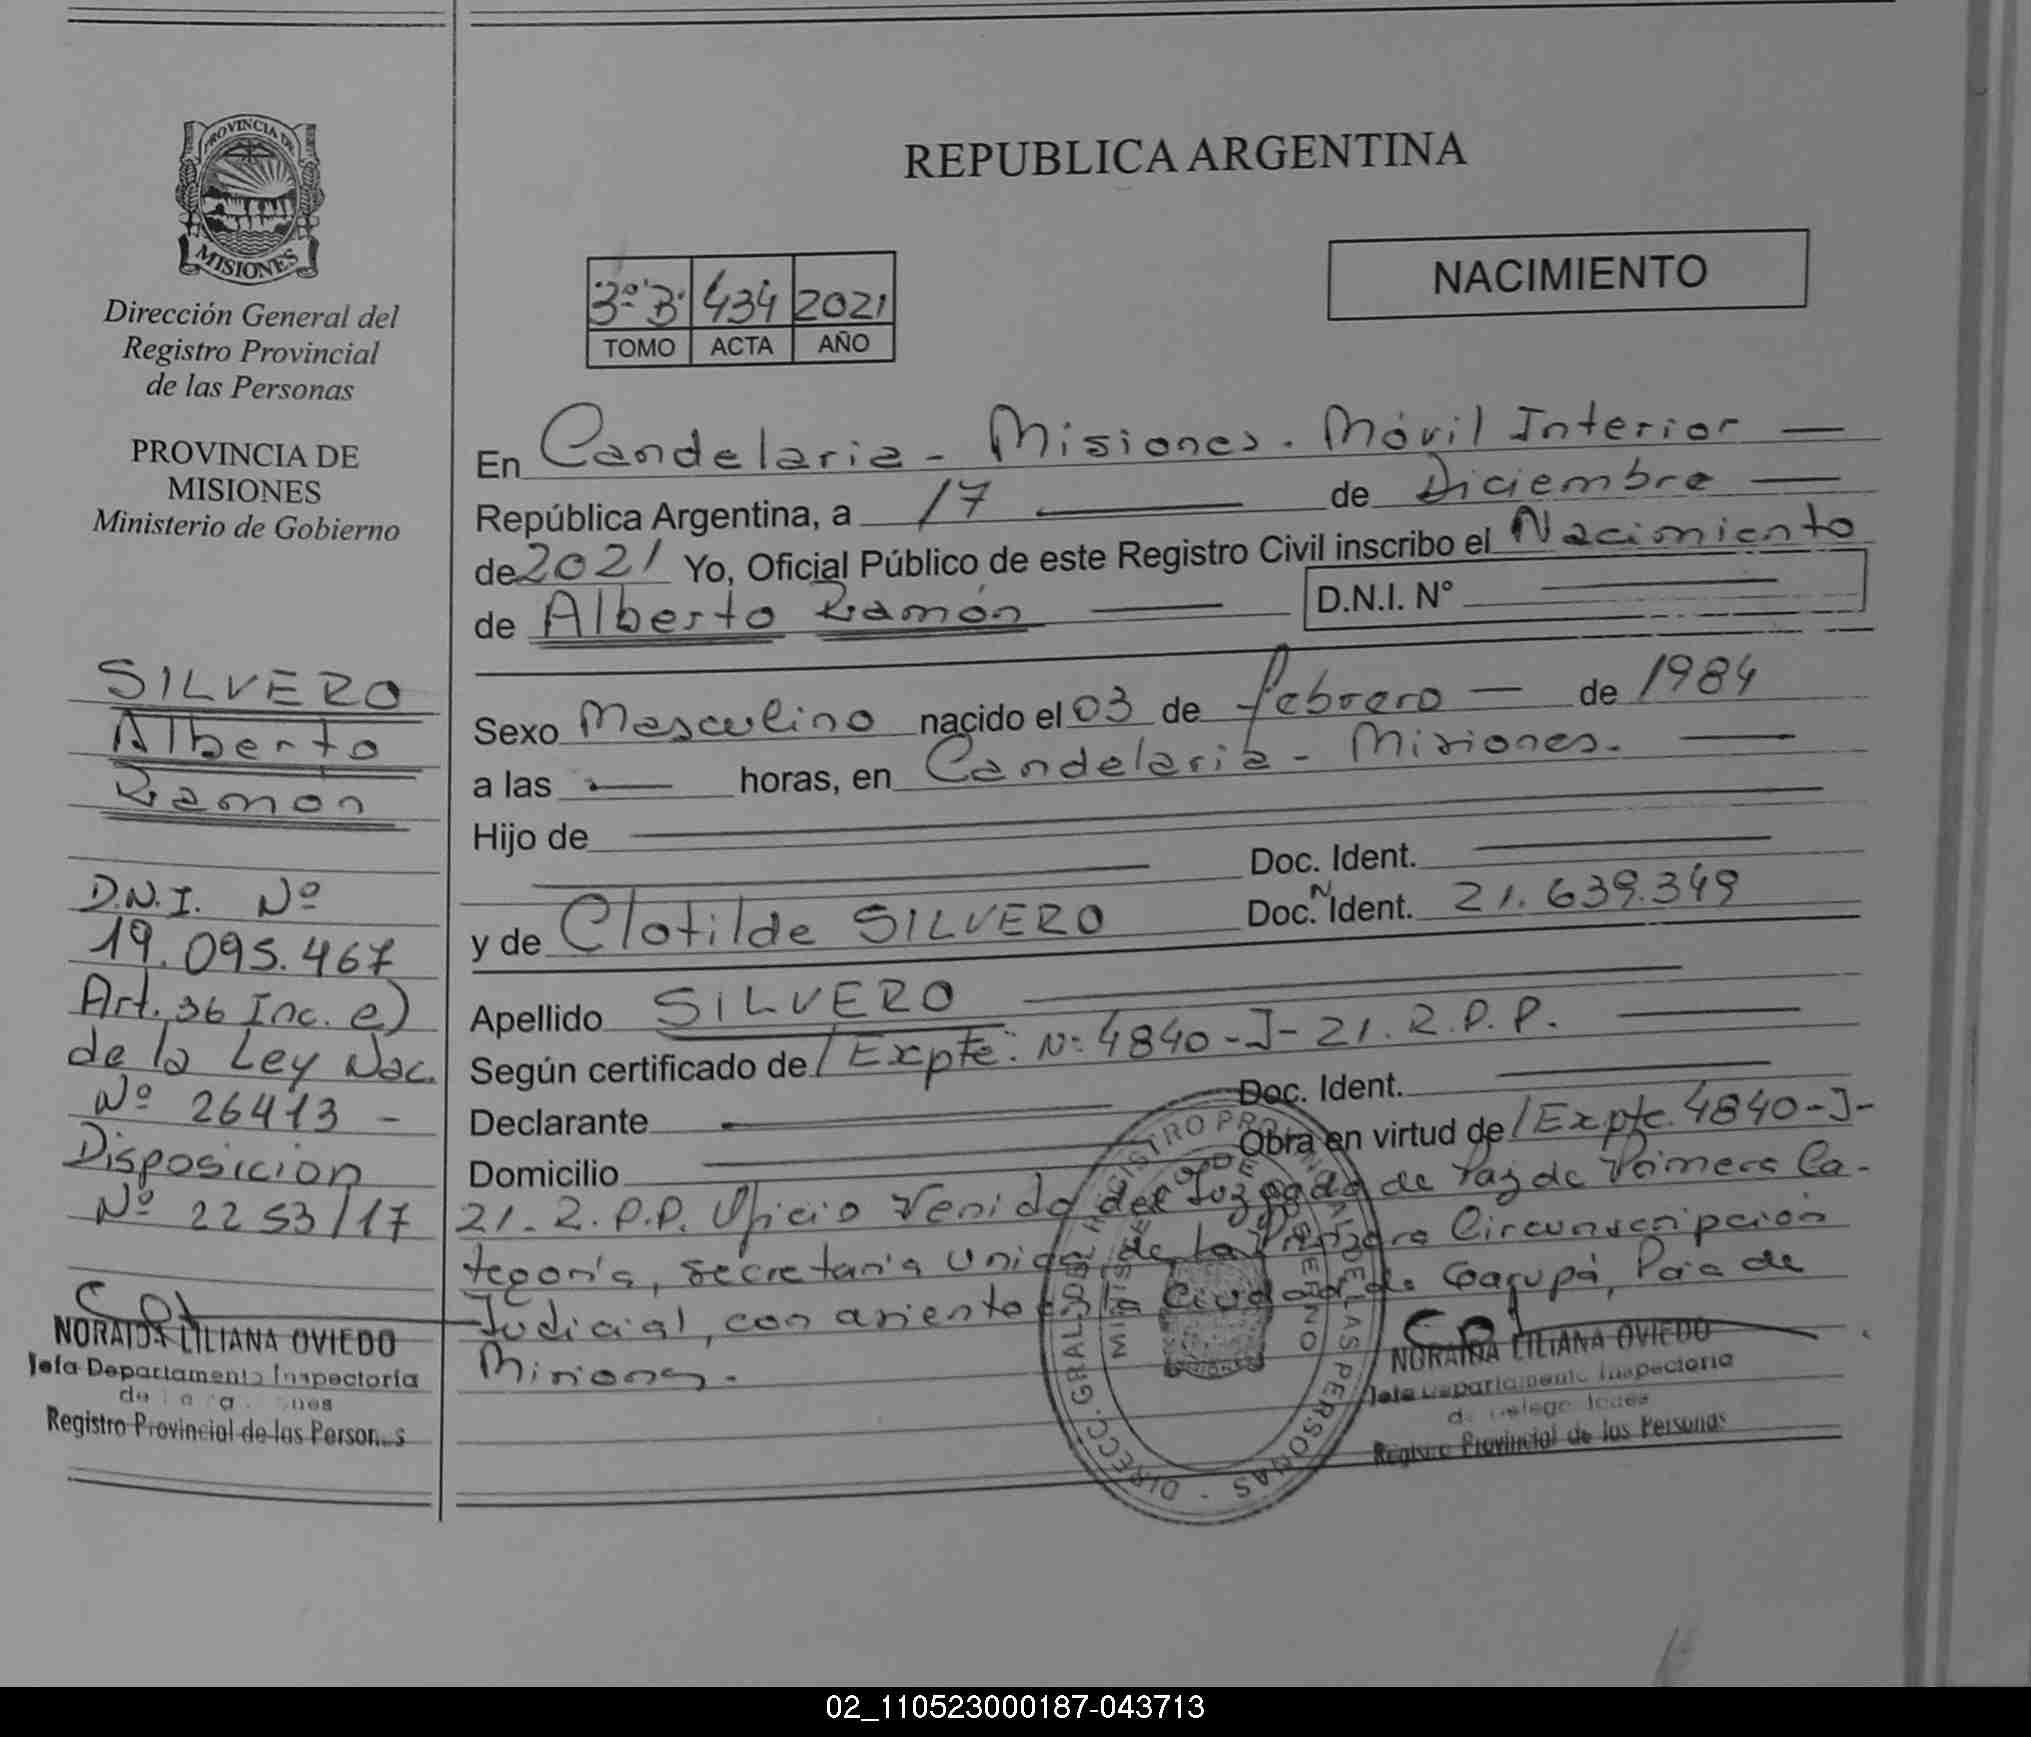 PROVINCIA DE
MISIONES
Dirección General del
Registro Provincial
de las Personas
PROVINCIA DE
MISIONES
Ministerio de Gobierno
SILVERO
Alberto
Ramón
D.N.I. Nº
19.095.467
Art. 36 Inc. e)
de la Ley Nac.
Nº 26413 -
Disposición
Nº 2253/17
NORAIDA LILIANA OVIEDO
Jefa Departamento Inspectoría
de
Registro Provincial de las Personas
REPUBLICA ARGENTINA
3º B. 434 2021
TOMO ACTA AÑO
NACIMIENTO
En Candelaria - Misiones. Móvil Interior —
República Argentina, a 17 — de Diciembre —
de 2021 Yo, Oficial Público de este Registro Civil inscribo el Nacimiento
de Alberto Ramón — D.N.I. N° —
Sexo Masculino nacido el 03 de febrero — de 1984
a las — horas, en Candelaria - Misiones. —
Hijo de —
Doc. Ident. —
y de Clotilde SILVERO Doc. N Ident. 21.639.349
Apellido SILVERO —
Según certificado de / Expte: Nº 4840-J-21. R.P.P. —
Declarante — Doc. Ident. —
Domicilio — Obra en virtud de / Expte. 4840-J-
21. R.P.P. Oficio Venido del Juzgado de Paz de Primera Ca-
tegoría, secretaría Unica de la Primera Circunscripción
Judicial, con asiento la Ciudad de Garupá, Pcia de
Misiones.
DIRECC. GRAL. DEL REGISTRO PROVINCIAL DE LAS PERSONAS -
MINISTERIO DE GOBIERNO
NORAIDA LILIANA OVIEDO
Jefa Departamento Inspectoría
de Delegaciones
Registro Provincial de las Personas
02_110523000187-043713